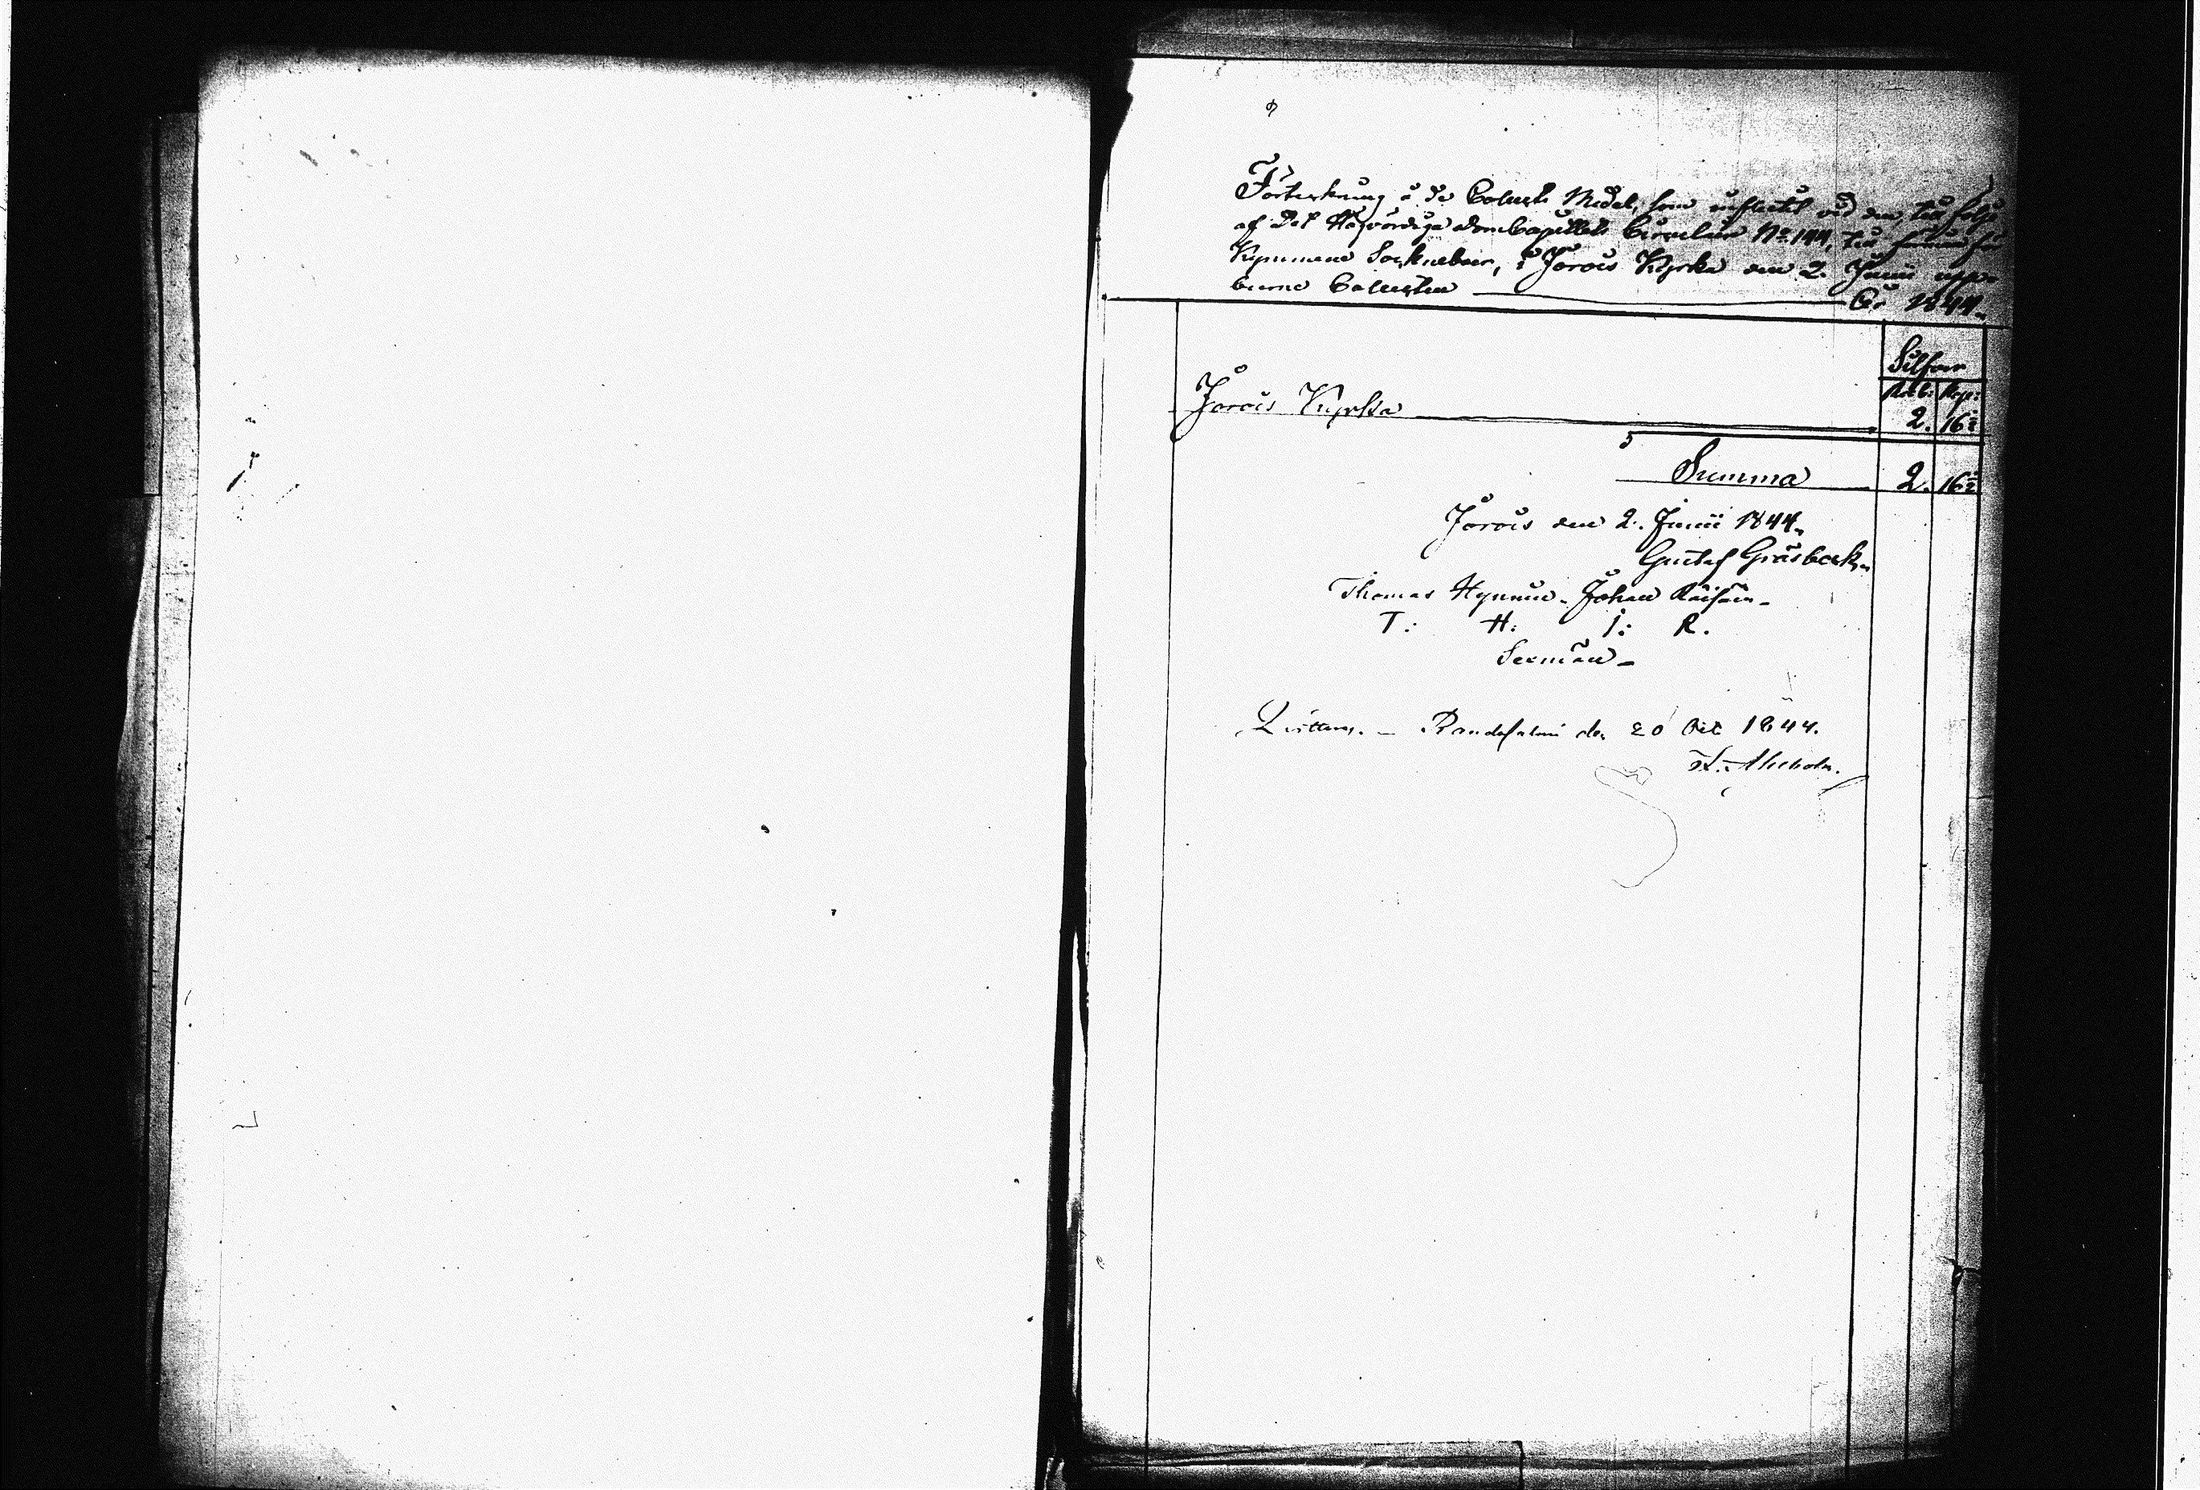 Förteckning å de Collect Medel, som influtit vid den, till följe
af Det Högvördiga DomCapitlets Circulair No 144, till förmån för
Kymmene Sockneboer, i Jorois Kyrka den 2. Junii uppe-
burne Collecten År 1844.
Silfver
Rub: Kop:
Jorois Kyrka 2. 16½
Summa 2. 16½
Jorois den 2. Junii 1844.
Gustaf Gråsbeck.
Thomas Hynnine. Johan Räisäin.
T: H: J: R.
Sexmän.
Qvitteras. Randasalmi den 20 Oct 1844.